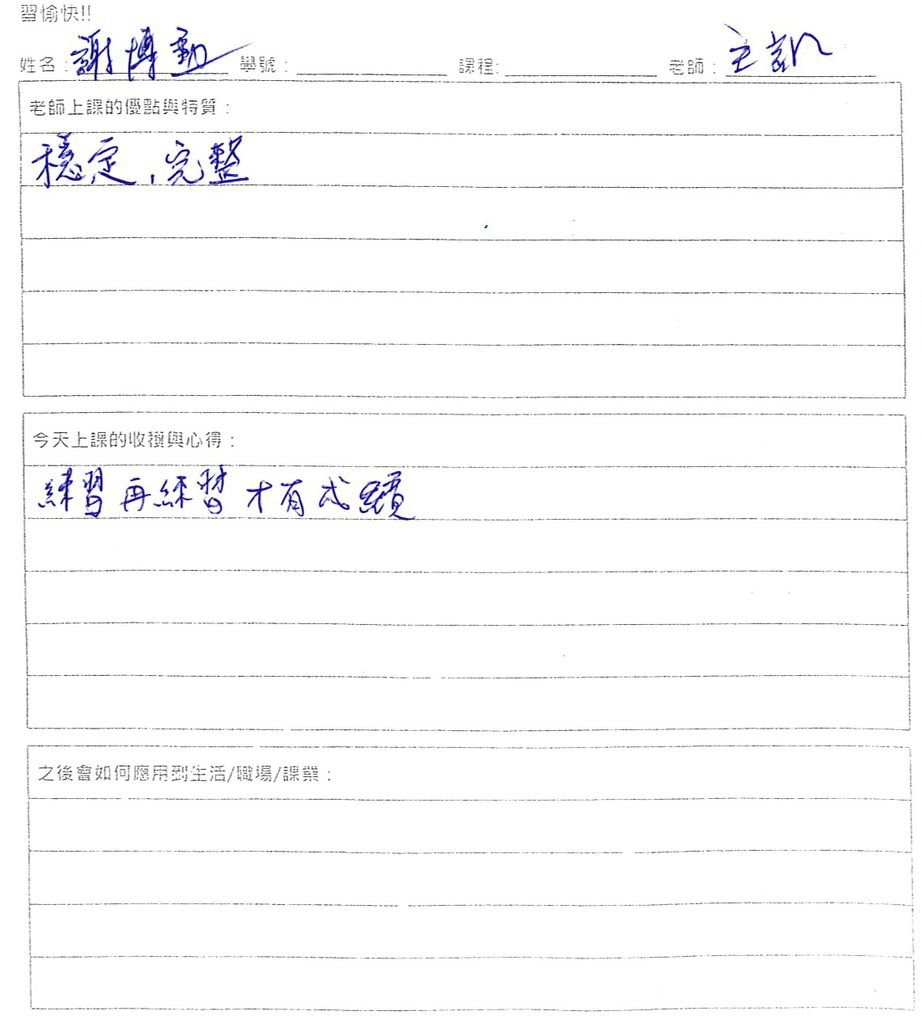 習愉快!!
姓名：謝博勳 學號： 課程: 老師：
老師上課的優點與特質：
穩定，完整
今天上課的收穫與心得：
練習再練習才有成績
之後會如何應用到生活/職場/課業：